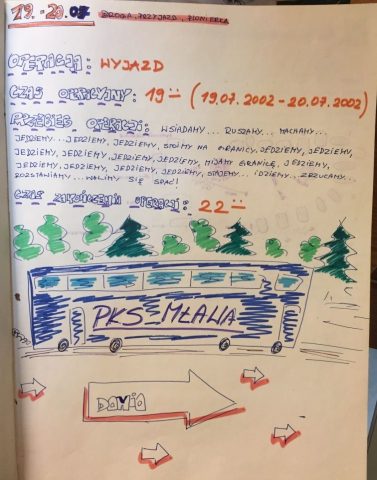 19.-20.07 DROGA, PRZYJAZD, PIONIERKA
OPERACJA: WYJAZD
CZAS OPERACYJNY: 19:– (19.07.2002-20.07.2002)
PRZEBIEG OPERACJI: WSIADAMY... RUSZAMY... MACHAMY...
JEDZIEMY... JEDZIEMY, JEDZIEMY, STOIMY NA GRANICY, JEDZIEMY, JEDZIEMY,
JEDZIEMY, JEDZIEMY, JEDZIEMY, JEDZIEMY, MIJAMY GRANICĘ, JEDZIEMY,
JEDZIEMY, JEDZIEMY, JEDZIEMY, JEDZIEMY, STAJEMY... IDZIEMY... ZRZUCAMY..
ROZSTAWIAMY... WALIMY SIĘ SPAĆ!
CZAS ZAKOŃCZENIA OPERACJI: 22:–
PKS MŁAWA